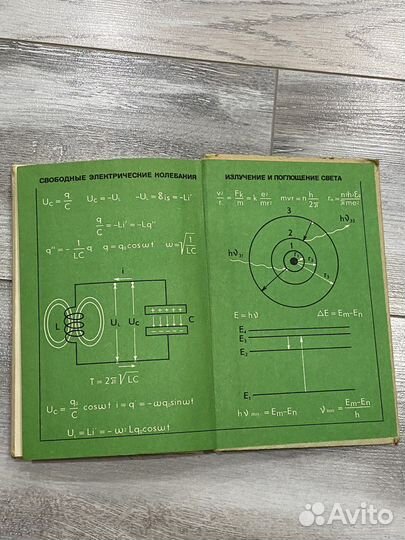 СВОБОДНЫЕ ЭЛЕКТРИЧЕСКИЕ КОЛЕБАНИЯ
U_C = q/C   U_C = -U_L   -U_L = ℰis = -Li′
q/C = -Li′ = -Lq″
q″ = -1/LC q   q = q₀ cosωt   ω = √1/LC
i
L U_L U_C C
+ + + + +
T = 2π√LC
U_C = q₀/C cosωt   i = q̇ = -ωq₀ sinωt
U_L = Li′ = -ω²Lq₀cosωt
ИЗЛУЧЕНИЕ И ПОГЛОЩЕНИЕ СВЕТА
v²/r = Fк/m = k e²/mr²   mvr = n h/2π
3
2
1
hν₃₁
E = hν   ΔE = Em-En
E₄
E₃
E₂
E₁
hν = Em-En   ν = Em-En/h
Avito